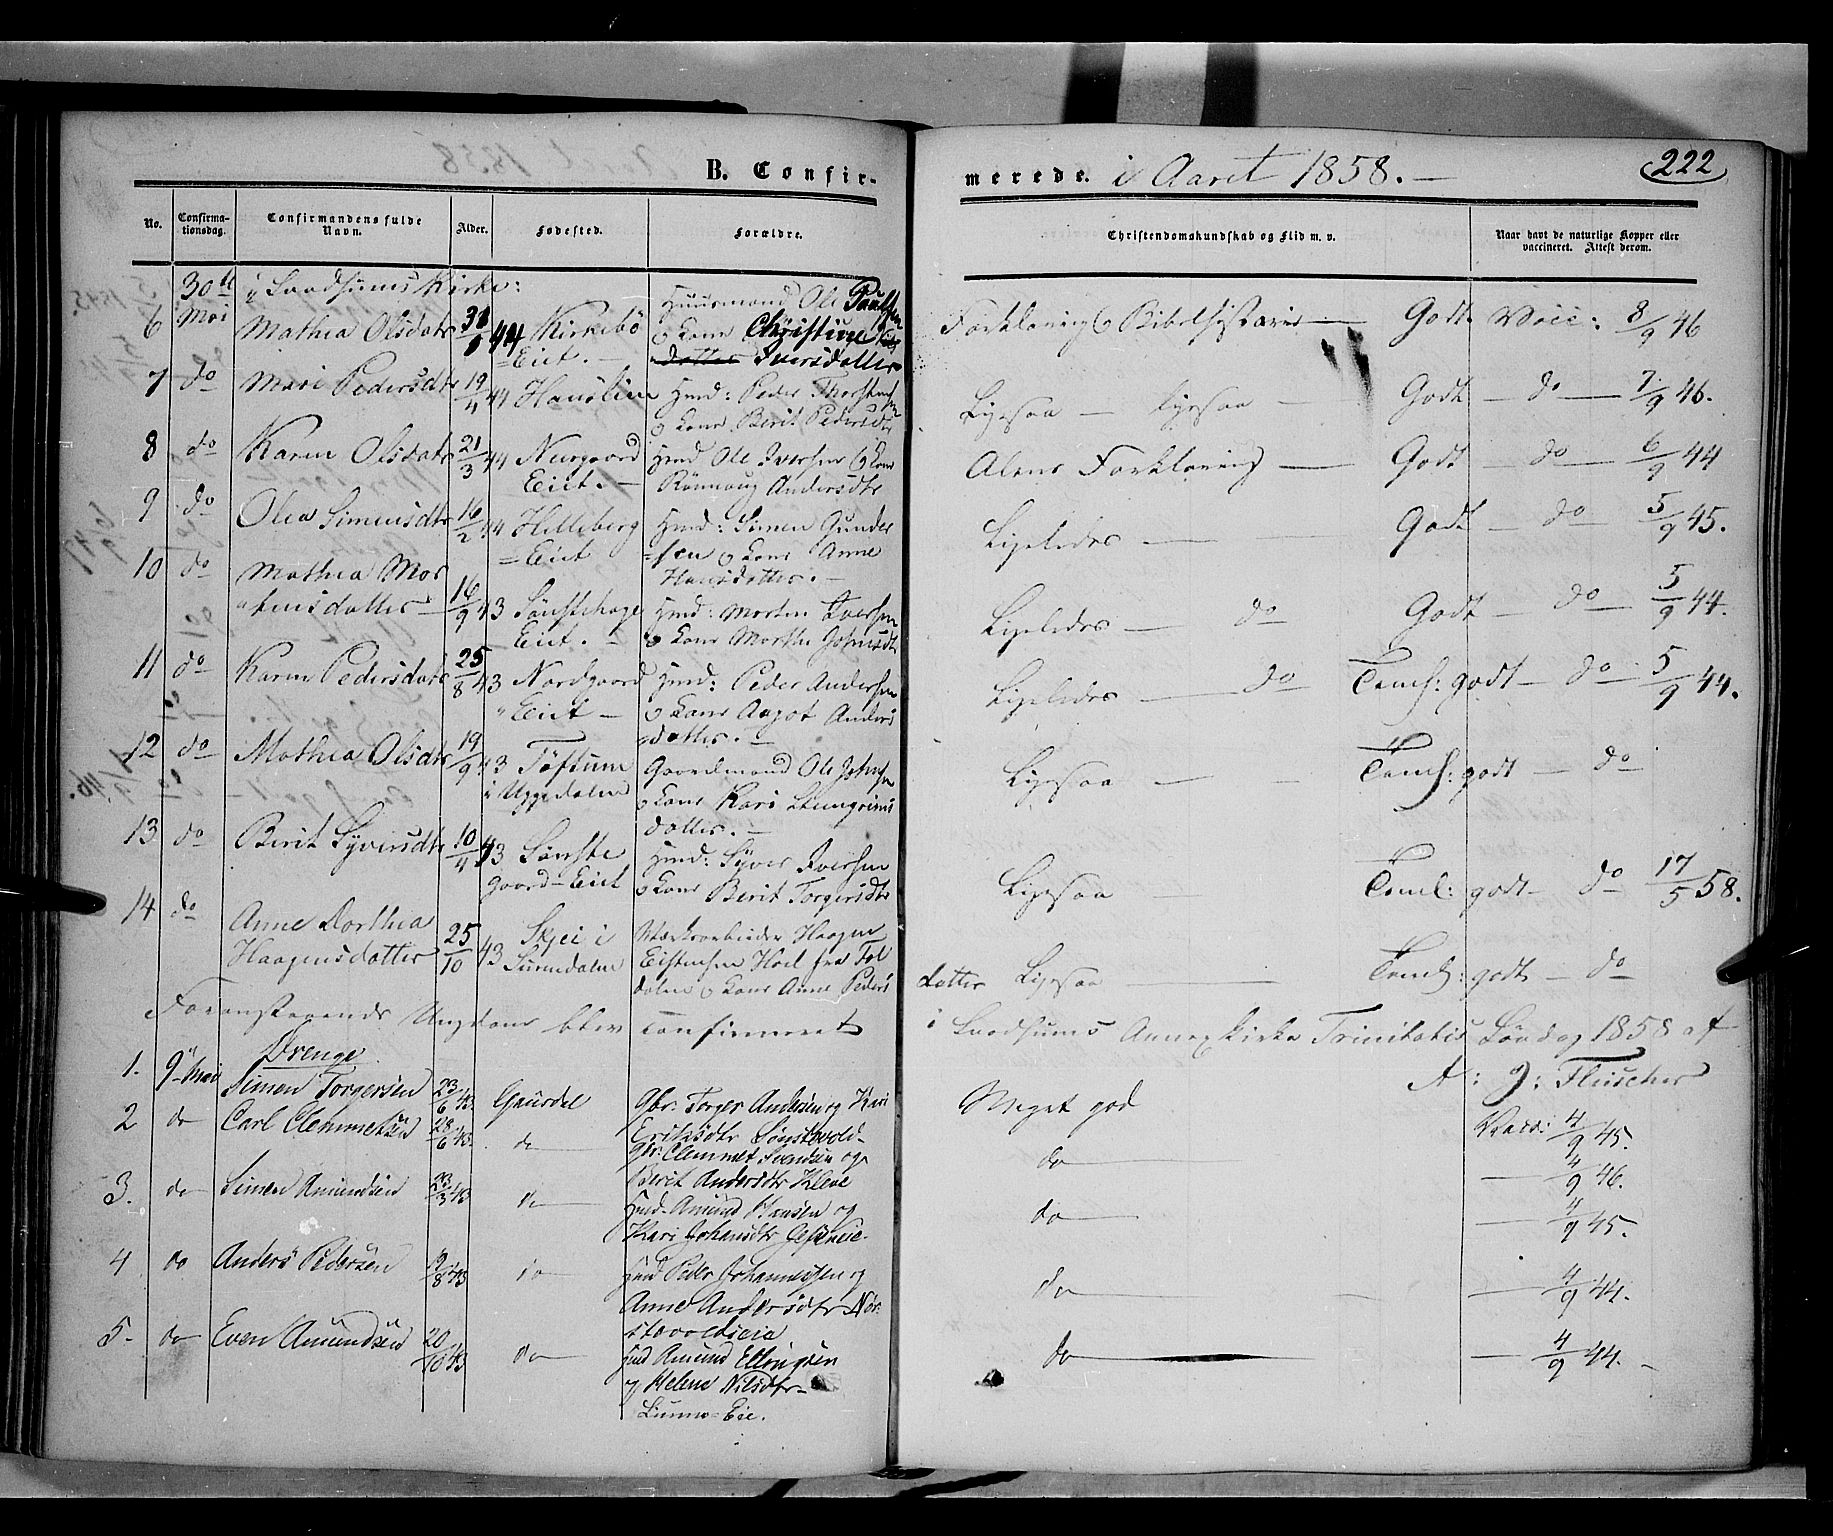 B. Confir-
merede. i Aaret 1858. —
222
No.
Confirma-
tionsdag.
Confirmandens fulde
Navn.
Alder.
Fødested.
Forældre.
Christendomskundskab og Flid m. v.
Naar havt de naturlige Kopper eller
vaccineret. Attest derom.
30te i Svadsums Kirke:
6 Mai Mathea Olsdatr 44 Kirkebö
Eiet. — Huusmand Ole Paulsen
o Kone Christine
Iversdatter
Forklaring o Bibelhistorie — Godt Vacc: 8/9 46
7 do Mari Pedersdtr 19/4 44 Hauslien Hmd: Peder Thorstens
o Kone Berit Pedersdtr
Ligesaa — Ligesaa — Godt — do — 7/9 46.
8 do Karen Olsdatr 21/3 44 Nurgaard
Eiet. — Hmd Ole Iversen o Kone
Rönnaug Andersdtr
Alene Forklaring — Godt — do — 6/9 44
9 do Olea Simensdtr 16/2 44 Hilleberg
=Eiet Hmd: Simen Gunder
=sen o Kone Anne
Hansdatter. —
Ligeledes — Godt — do 5/9 45.
10 do Mathea Mor
tensdatter 16/9 43 Sönstehage
Eiet. — Hmd: Morten Iversen
o Kone Marthe Johnsdtr
Ligeledes — do Godt — do — 5/9 44.
11 do Karen Pedersdatr 25/8 43 Nordgaard
Eiet — Hmd: Peder Andersen
o Kone Aagot Anders
datter. —
Ligeledes — do Teml: godt — do 5/9 44.
12 do Mathea Olsdtr 19/9 43 Töftum
i Uggedalen Gaardmand Ole Johnsen
o Kone Kari Steingrims
datter. —
Ligesaa — Teml: godt — do
13 do Berit Syversdtr 10/4 43 Sönste
gaard=Eiet Hmd: Syver Iversen
o Kone Berit Torgersdtr
Ligesaa — Teml: godt — do 17/5 58.
14 do Anne Dorthea
Haagensdatter 25/10 43 Skjei i
Surendalen Værksarbeider Haagen
Eistensen Hoel fra Fol
dalen o Kone Anne Peders
datter Ligesaa — Teml: godt — do
Foranstaaende Ungdom blev confirmeret i Svadsums Annexkirke Trinitatis Söndag 1858 af
A: J: Fleischer
Drenge
1. 9 Mai Simen Torgersen 23/6 43. Gausdal Gbr: Torger Andersen og Kari
Eriksdtr Sönstevold —
Meget god Vacc: 4/9 45.
2 do Carl Clemmetsen 28/6 43. do Gbr: Clemmet Svendsen og
Berit Andersdtr Kleve
do — 4/9 46.
3. do Simen Amundsen 23/3 43 do Hmd. Amund Hansen og
Kari Johansdtr
do — 4/9 45.
4 do Anders Pedersen 19/8 43 do Hmd Peder Johannessen og
Anne Andersdtr Nör-
stevoldseie
do — 4/9 44.
5. do Even Amundsen 20/10 43 do Hmd Amund Ellingsen
og Helene Nilsdtr
Linnes=Eie.
do — 4/9 44. —